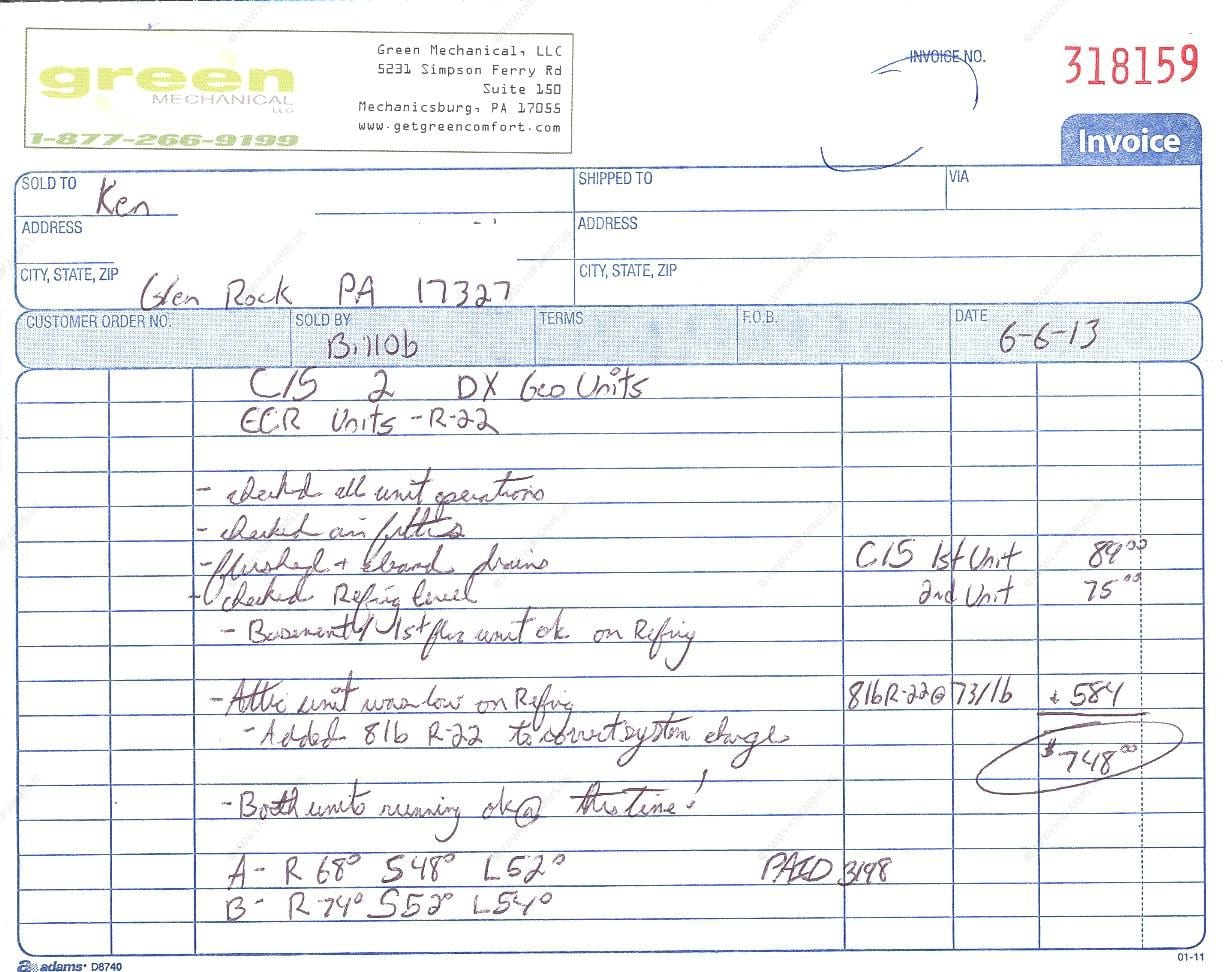 green
MECHANICAL
LLC
1-877-266-9199
Green Mechanical, LLC
5231 Simpson Ferry Rd
Suite 150
Mechanicsburg, PA 17055
www.getgreencomfort.com
INVOICE NO.
318159
Invoice
SOLD TO Ken
SHIPPED TO
VIA
ADDRESS
ADDRESS
CITY, STATE, ZIP Glen Rock PA 17327
CITY, STATE, ZIP
CUSTOMER ORDER NO.
SOLD BY Billob
TERMS
F.O.B.
DATE 6-6-13
C/S 2 DX Geo Units
ECR Units - R-22
- checked all unit operations
- checked air filters
- flushed + cleaned drains C/S 1st Unit 89.00
- checked Refrig level 2nd Unit 75.00
- Basement / 1st flr unit ok on Refrig
- Attic unit was low on Refrig 8lb R-22 @ 73/lb + 584
- Added 8lb R-22 to correct system charge
$748.00
- Both units running ok @ this time!
A- R 68° S 48° L 52° PAID 3198
B- R-74° S 52° L 54°
adams D8740
01-11
© WWW.KMFARMS.US